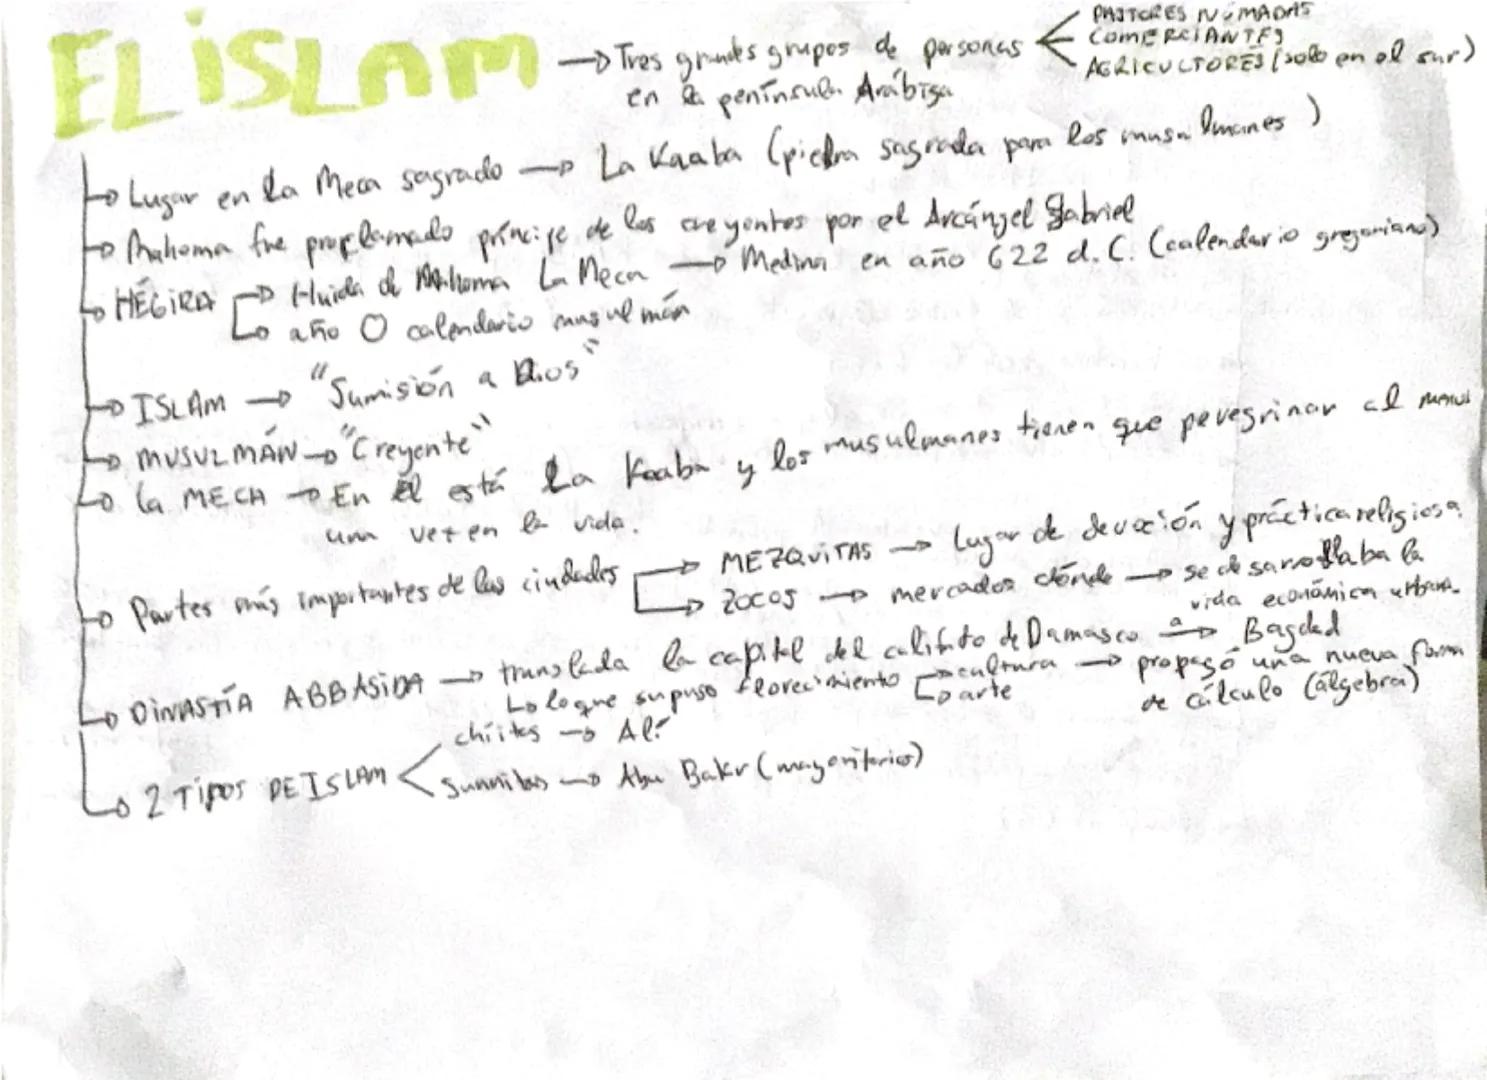 EL ISLAM → Tres grandes grupos de personas
PASTORES NÓMADAS
COMERCIANTES
AGRICULTORES (solo en el sur)
en la península Arábiga
→ Lugar en la Meca sagrado → La Kaaba (piedra sagrada para los musulmanes)
→ Mahoma fue proplamado príncipe de los creyentes por el Arcángel Gabriel
→ HÉGIRA → Huida de Mahoma La Meca → Medina en año 622 d.C. (calendario gregoriano)
→ año 0 calendario musulmán
→ ISLAM → "Sumisión a Dios"
→ MUSULMÁN → "Creyente"
→ La MECA → En él está la Kaaba y los musulmanes tienen que peregrinar al menos
una vez en la vida.
→ Partes más importantes de las ciudades → MEZQUITAS → Lugar de devoción y práctica religiosa
→ ZOCOS → mercados dónde → se desarrollaba la
vida económica urbana
→ DINASTÍA ABBASIDA → translada la capital del califato de Damasco a → Bagdad
↳ lo que supuso florecimiento → cultura → propagó una nueva forma
→ arte de cálculo (álgebra)
→ 2 TIPOS DE ISLAM < chiítes → Alí
sunnitas → Abu Bakr (mayoritarios)